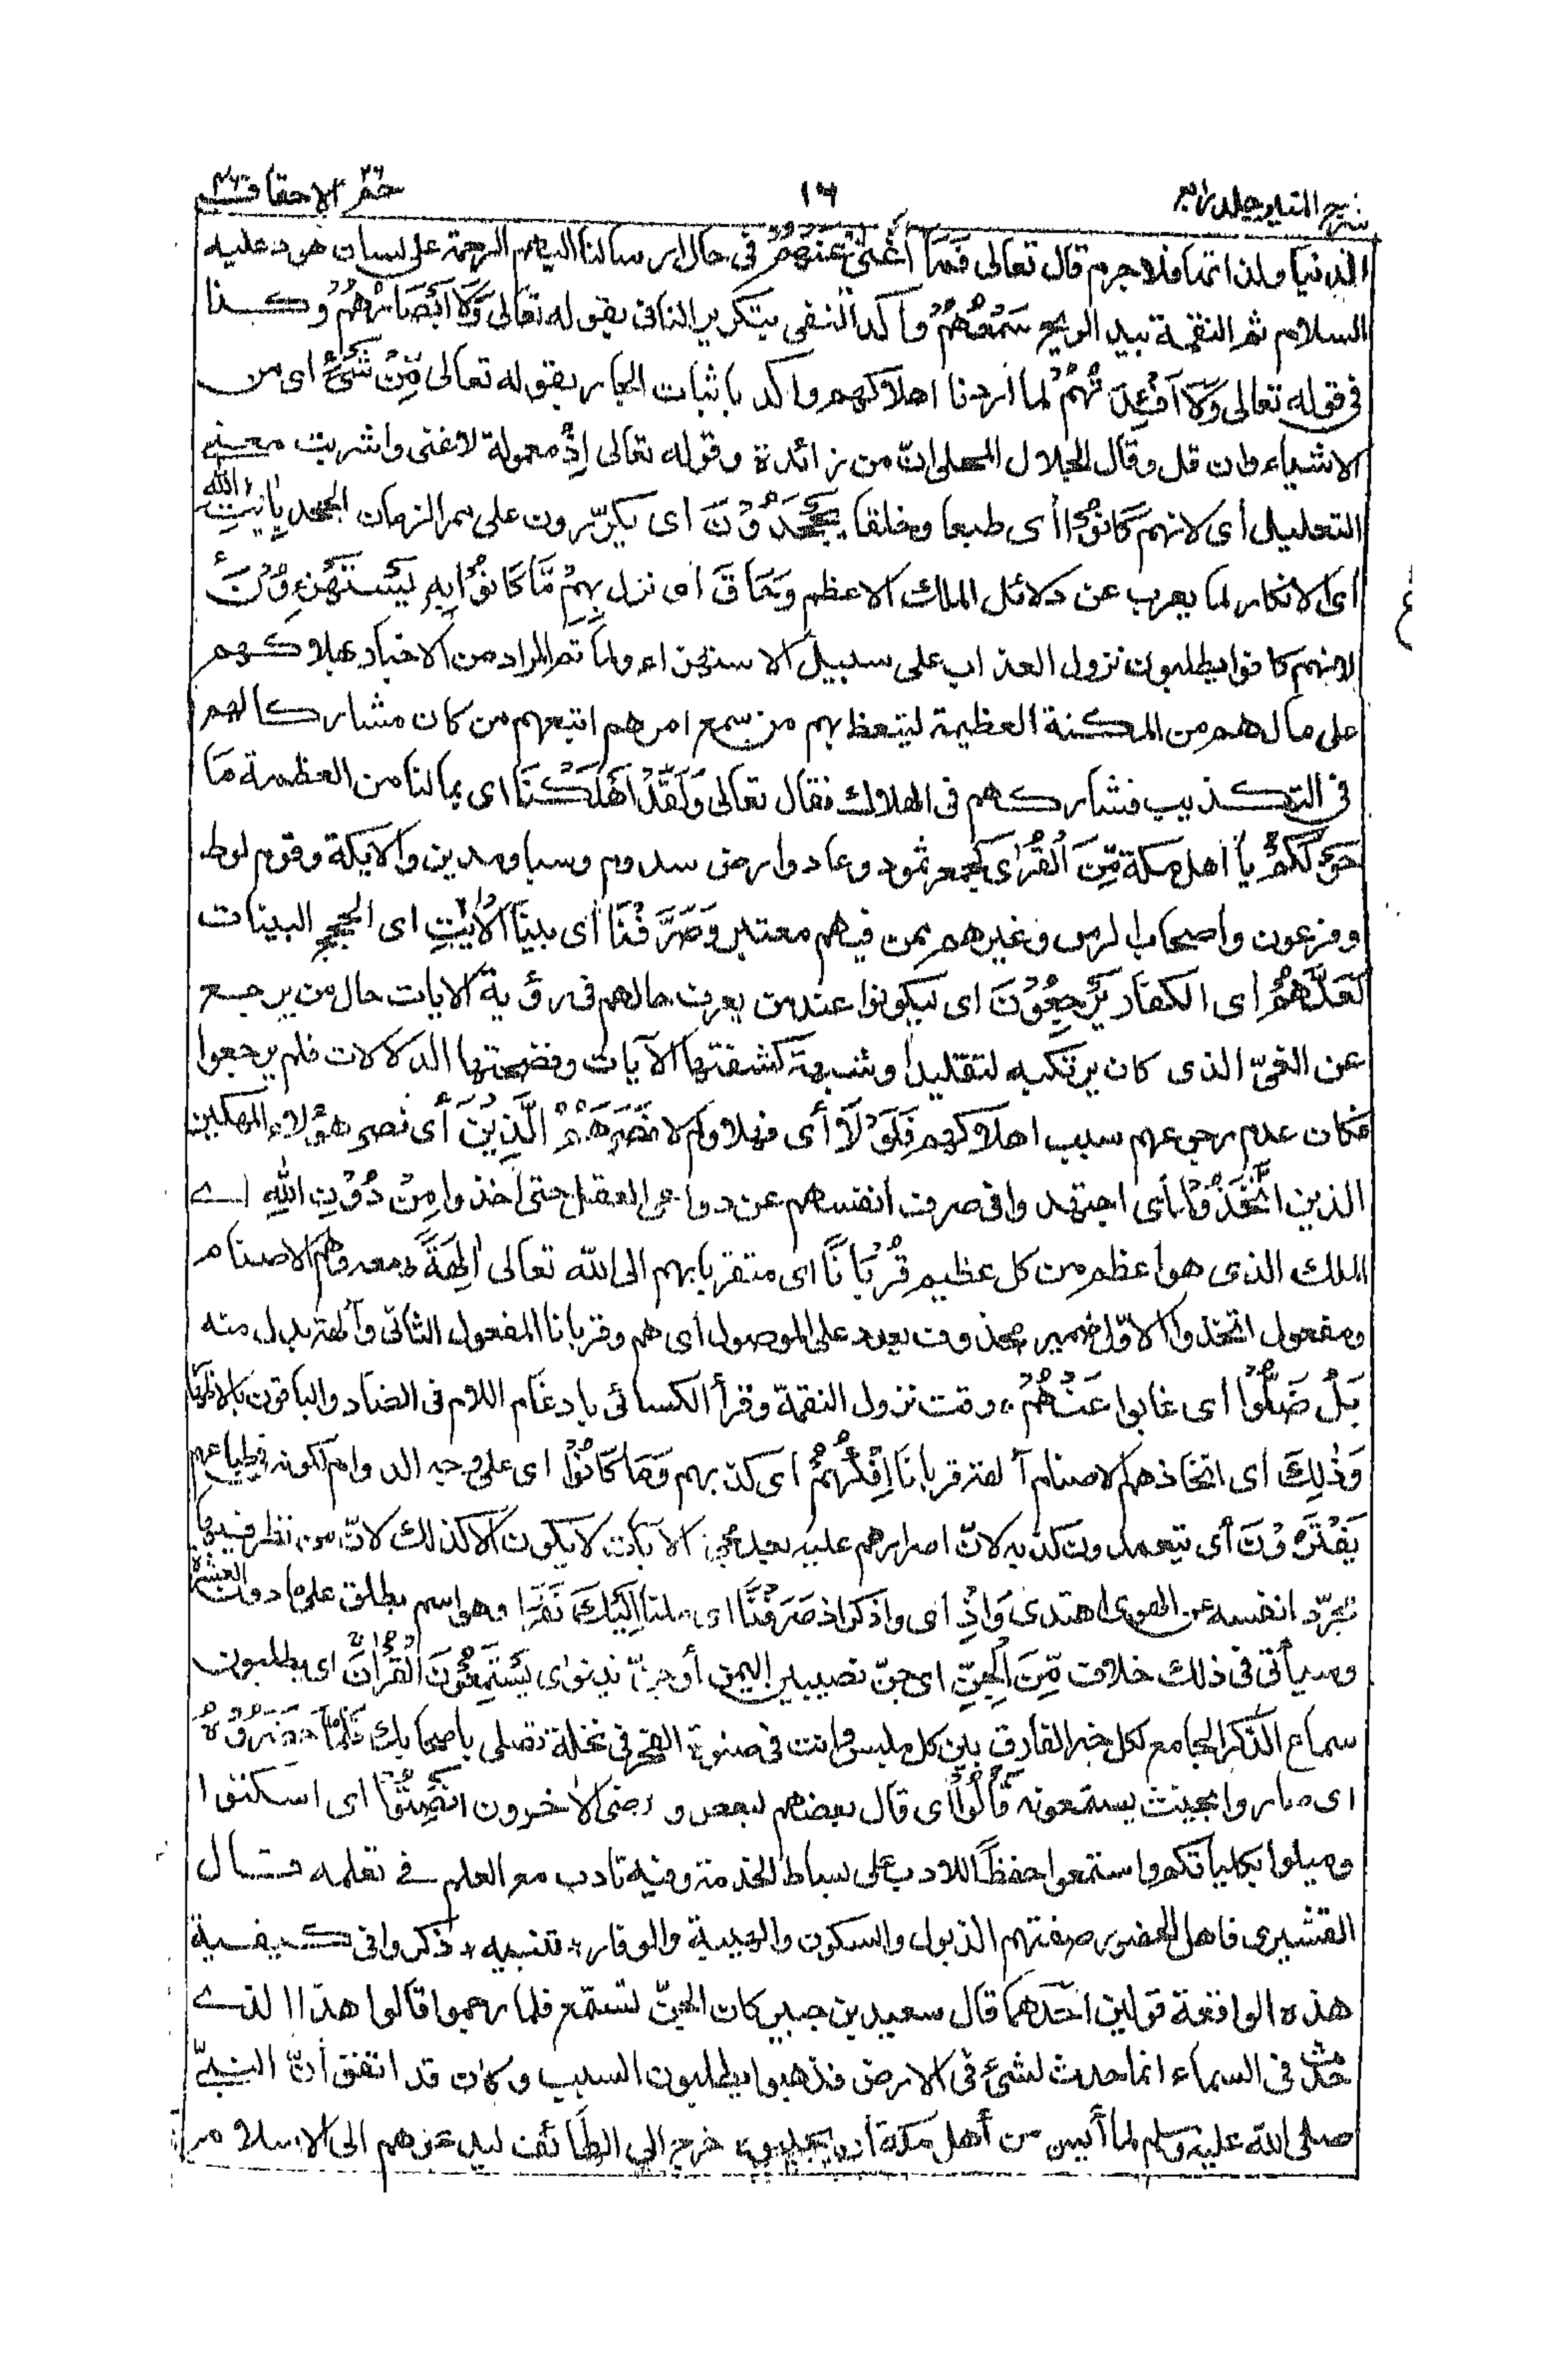 سراج المنير جلد رابع ١٦ حٰمٓ ٢٦ الاحقاف ٤٦
الدنيا ولذاتها فلا جرم قال تعالى فَمَآ اَغْنٰى عَنْهُمْ في حال ارسالنا اليهم الرحمة على لسان هود عليه
السلام ثم النقمة بيد الريح سَمْعُهُمْ وأكد النفى بتكرير النافى بقوله تعالى وَلَآ اَبْصَارُهُمْ وكذا
فى قوله تعالى وَلَآ اَفْـِٕدَتُهُمْ لما أردنا اهلاكهم واكد باثبات الجار بقوله تعالى مِّنْ شَىْءٍ اى من
الاشياء وان قل وقال الجلال المحلى انّ من زائدة وقوله تعالى اِذْ معمولة لاغنى واشربت معنى
التعليل أى لانهم كَانُوْا أى طبعا وخلقا يَجْحَدُوْنَ اى يكرّرون على ممر الزمان الجحد بِاٰيٰتِ اللّٰهِ
أى الانكار لما يعرب عن دلائل الملك الاعظم وَحَاقَ اى نزل بِهِمْ مَّا كَانُوْا بِهٖ يَسْتَهْزِءُوْنَ
لانهم كانوا يطلبون نزول العذاب على سبيل الاستهزاء ولما تم المراد من الاخبار بهلاكهم
على مالهم من المكنة العظيمة ليتعظ بهم من سمع امرهم اتبعهم من كان مشاركا لهم
فى التكذيب فشاركهم فى الهلاك فقال تعالى وَلَقَدْ اَهْلَكْنَا اى بمالنا من العظمة مَا
حَوْلَكُمْ يا أهل مكة مِّنَ الْقُرٰى كحجر ثمود وعاد وارض سدوم وسبا ومدين والايكة وقوم لوط
وفرعون واصحاب الرس وغيرهم ممن فيهم معتبر وَصَرَّفْنَا أى بينا الْاٰيٰتِ اى الحجج البينات
لَعَلَّهُمْ اى الكفار يَرْجِعُوْنَ اى ليكونوا عند من يعرف حالهم فى رؤية الايات حال من يرجع
عن الغىّ الذى كان يرتكبه لتقليد أو شبهة كشفتها الآيات وفضحتها الدلالات فلم يرجعوا
فكان عدم رجوعهم سبب اهلاكهم فَلَوْلَا أى فهلا ولم لا نَصَرَهُمُ الَّذِيْنَ أى نصر هؤلاء المهلكين
الذين اتَّخَذُوْا أى اجتهدوا فى صرف انفسهم عن دواعى العقل حتى أخذوا مِنْ دُوْنِ اللّٰهِ اى
الملك الذى هو اعظم من كل عظيم قُرْبَانًا اى متقربا بهم الى الله تعالى اٰلِهَةً معه وهم الاصنام
ومفعول اتخذوا الاوّل ضمير محذوف يعود على الموصول أى هم وقربانا المفعول الثانى وآلهة بدل منه
بَلْ ضَلُّوْا أى غابوا عَنْهُمْ وقت نزول النقمة وقرأ الكسائى بادغام اللام فى الضاد والباقون بالاظهار
وَذٰلِكَ اى اتخاذهم الاصنام آلهة قربانا اِفْكُهُمْ أى كذبهم وَمَا كَانُوْا اى على وجه الدوام لكونه فى طباعهم
يَفْتَرُوْنَ أى يتعمدون كذبه لانّ اصرارهم عليه بعد مجئ الآيات لا يكون الا كذلك لانّ من نظر فيها
مجرّد انفسه عن الهوى اهتدى وَاِذْ اى واذكر اذ صَرَفْنَآ اى املنا اِلَيْكَ نَفَرًا وهو اسم يطلق على ما دون العشرة
وسيأتى فى ذلك خلاف مِّنَ الْجِنِّ اى جنّ نصيبين اليمن أو جنّ نينوى يَسْتَمِعُوْنَ الْقُرْاٰنَ اى يطلبون
سماع الذكر الجامع لكل خير الفارق بين كل ملبس وانت فى صلوة الفجر فى نخلة تصلى باصحابك فَلَمَّا حَضَرُوْهُ
اى صاروا بحيث يسمعونه قَالُوْٓا أى قال بعضهم لبعض ورضى الاخرون اَنْصِتُوْا اى اسكتوا
وميلوا بكلياتكم واستمعوا حفظا للادب على بساط الخدمة وفيه تادب مع العلم فى تعلمه قال
القشيرى فاهل الحضور صفتهم الذبول والسكون والهيبة والوقار * تنبيه * ذكروا فى كيفية
هذه الواقعة قولين احدهما قال سعيد بن جبير كان الجنّ تستمع فلما رجموا قالوا هذا الذى
حدث فى السماء انما حدث لشئ فى الارض فذهبوا يطلبون السبب وكان قد اتفق أنّ النبىّ
صلى الله عليه وسلم لما أيس من أهل مكة أن يجيبوه خرج الى الطائف ليدعوهم الى الاسلام
ع